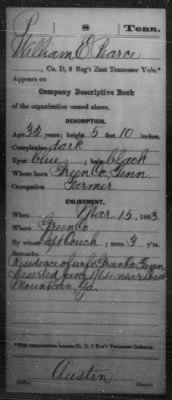 P 8 Tenn.
William E. Pearce
Co. D, 8 Reg't East Tennessee Vols.*
Appears on
Company Descriptive Book
of the organization named above.
DESCRIPTION.
Age 32 years; height 5 feet 10 inches.
Complexion dark
Eyes blue; hair black
Where born Green Co, Tenn
Occupation Farmer
ENLISTMENT.
When Mar 15, 1863.
Where Green Co
By whom Capt Couch; term 3 y'rs.
Remarks:
Residence of wife Green Co Tenn
Deserted June 1864 near
Mountain, Ga.
*This organization became Co. D, 8 Reg't Tennessee Infantry.
Austin